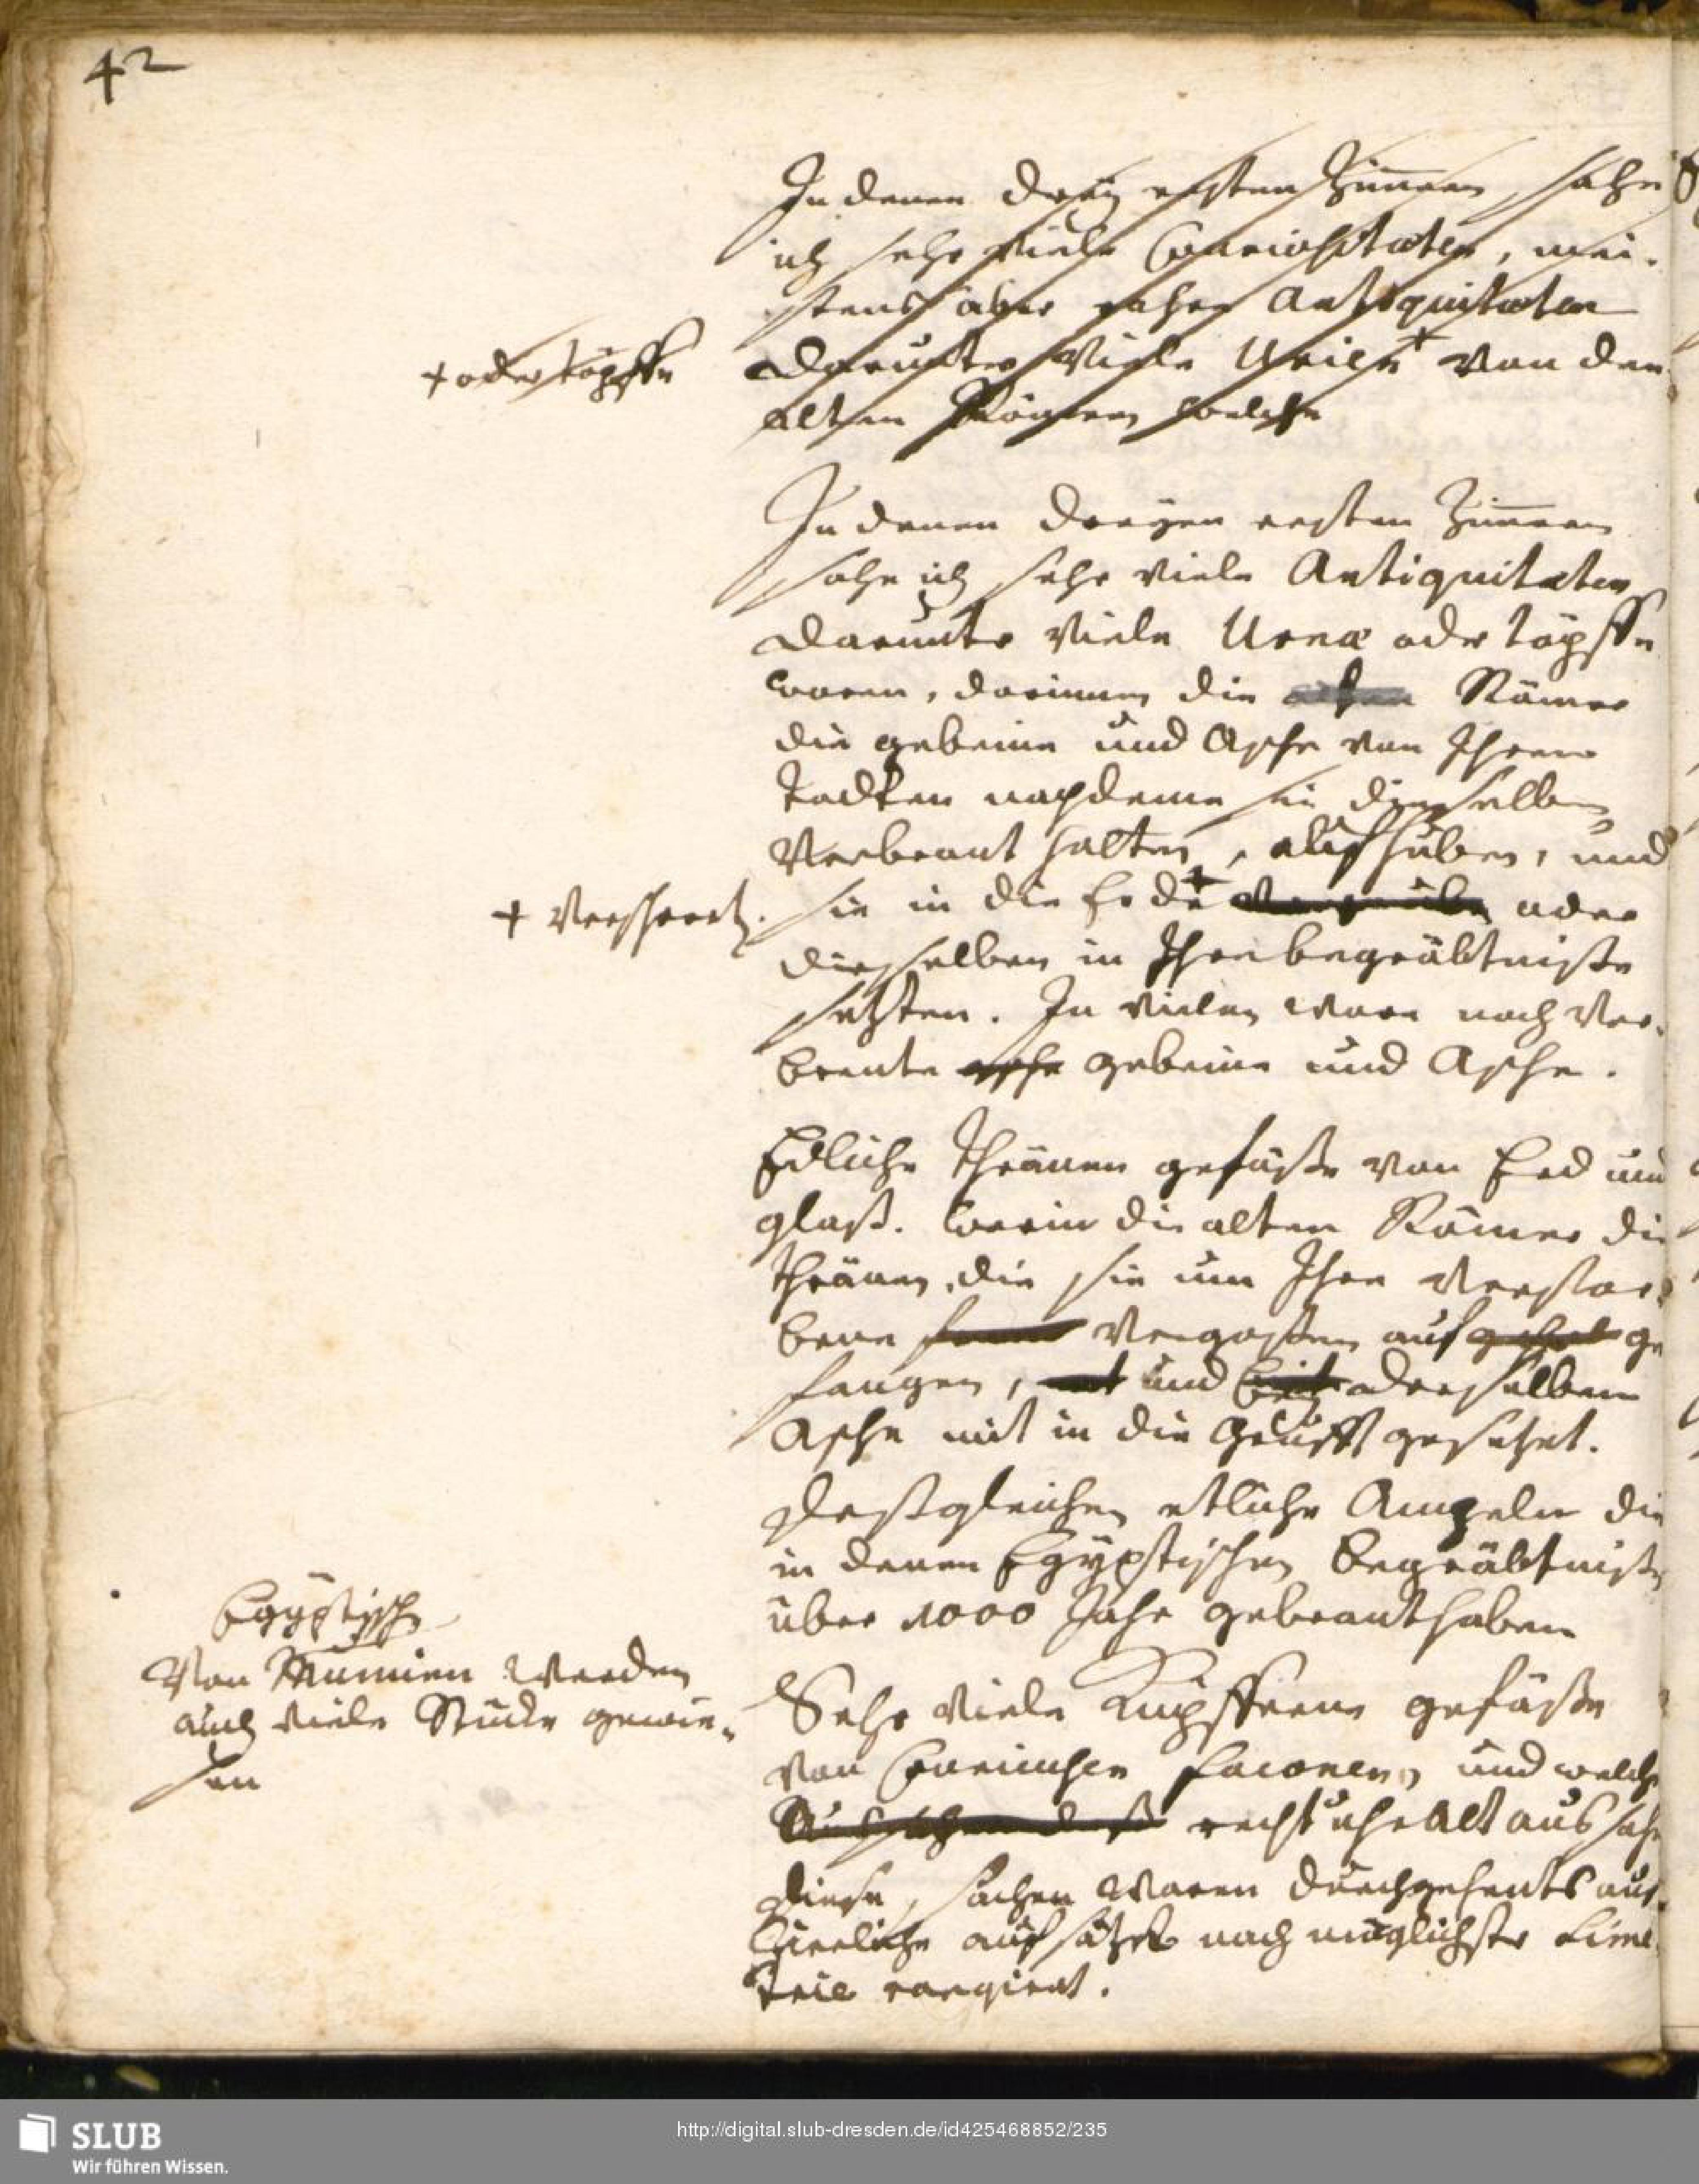 42
In denen dreÿ ersten Zim̅ern sahe
ich sehr viele Couriositäten, mei-
stens aber rahre Antiquitæten
+ oder töpffe
darunter Viele Uriln + von den
alten Römern welche
In denen dreÿen ersten Zim̅ern
sahe ich sehr viele Antiquitæten
darunter Viele Urnæ oder töpffe
waren, darinnen die alten Römer
die gebeine und Asche von Ihren
todten nachdeme sie dieselben
Verbrant hatten, aufhuben, und
+ Verscharrt.
sie in die Erde + oder
dieselben in Ihre begräbtniße
setzten. In vielen ware noch Ver-
brente asche gebeine und Asche.
Edliche Thränen gefäße von Erd und
glaß. worin die alten Römer die
thränen, die sie um Ihre Verstor-
bene Vergoßen auf ge
fangen, und derselben
Asche mit in die Grufft gesetzet.
Deßgleichen etliche Ampeln die
in denen Egÿptischen Begräbtniße
über 1000 Jahr gebrant haben
Egÿptisch
Von Mumien werden
auch viele Stücke gewie-
sen
Sehr viele Kupfferne gefäße
von Couriusen facionen, und welche
recht uhr alt aus sahe
diese sachen waren durchgehents auf
Zierliche aufsätze nach müglichster Sime
trie rangiret.
SLUB
Wir führen Wissen.
http://digital.slub-dresden.de/id425468852/235